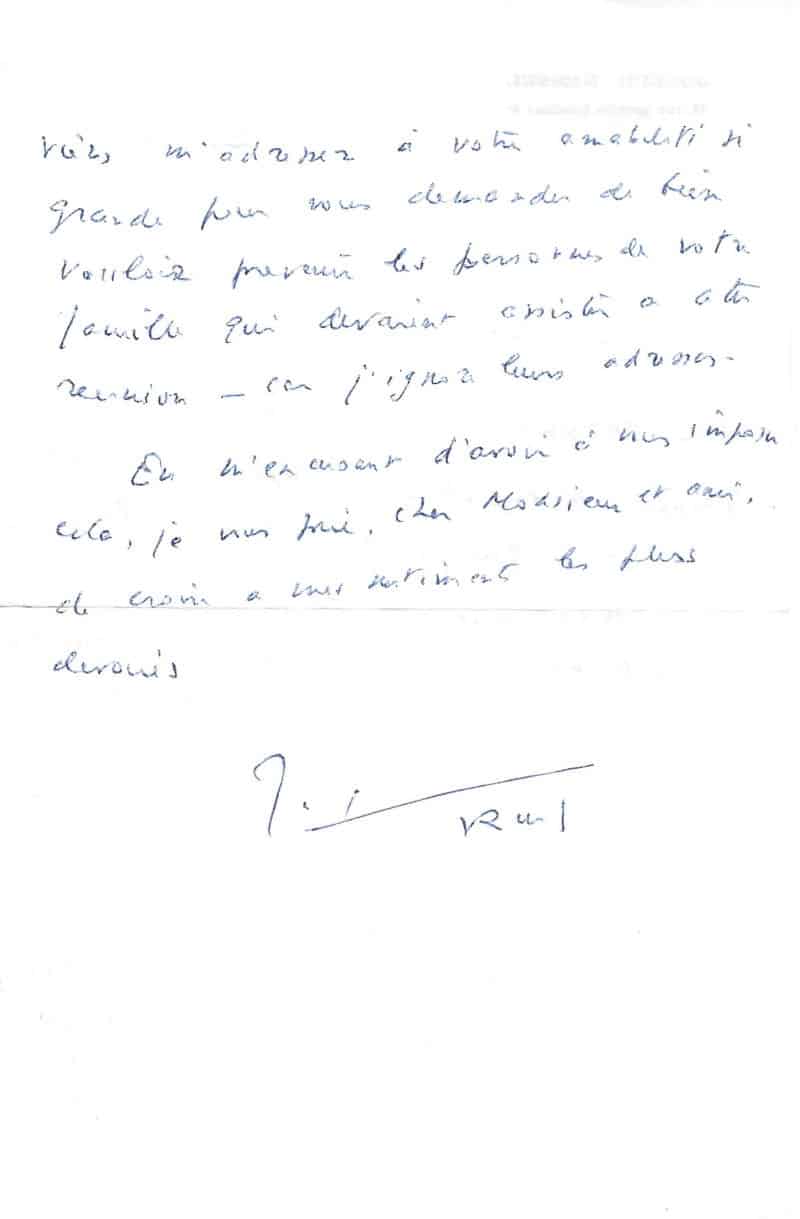 viens m'adresser à votre amabilité si
grande pour vous demander de bien
vouloir prévenir les personnes de votre
famille qui devaient assister à cette
reunion — car j'ignore leurs adresses.
En m'excusant d'avoir à vous imposer
cela, je vous prie, cher Monsieur et ami,
de croire à mes sentiments les plus
devoués